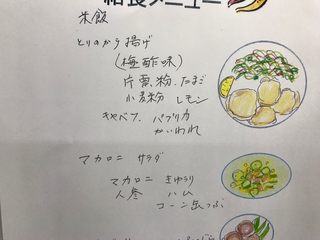 給食メニュー
米飯
とりのから揚げ
(梅酢味)
片栗粉.たまご
小麦粉 レモン
キャベツ パプリカ
かいわれ
マカロニ サラダ
マカロニ きゅうり
人参 ハム
コーン缶つぶ